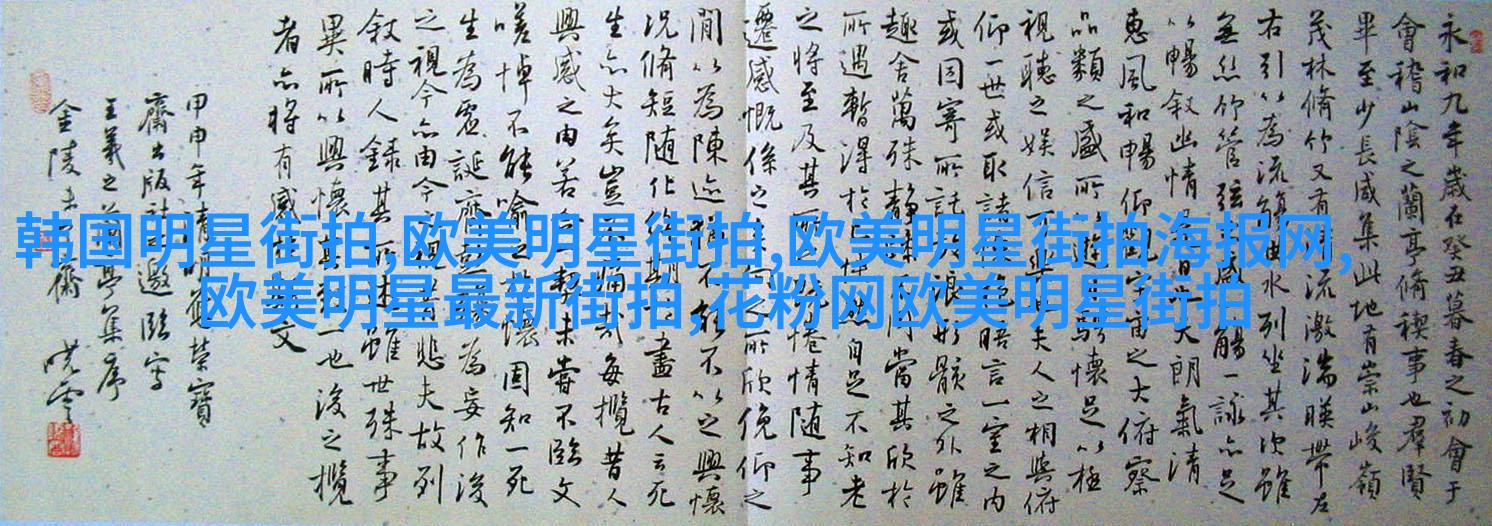 韩国明星街拍,欧美明星街拍,欧美明星街拍海报网,
欧美明星最新街拍,花粉网欧美明星街拍
永和九年歲在癸丑暮春之初會于
會稽山陰之蘭亭脩稧事也羣賢
畢至少長咸集此地有崇山峻嶺
茂林脩竹又有清流激湍暎帶左
右引以為流觴曲水列坐其次雖
無絲竹管弦之盛一觴一詠亦足
以暢敘幽情是日也天朗氣清
惠風和暢仰觀宇宙之大俯察
品類之盛所以遊目騁懷足以極
視聽之娛信可樂也夫人之相與俯
仰一世或取諸懷抱晤言一室之內
或因寄所託放浪形骸之外雖
趣舍萬殊靜躁不同當其欣於
所遇暫得於己快然自足不知老
之將至及其所之既惓情隨事
遷感慨係之矣向之所欣俛仰之
間以為陳迹猶不能不以之興懷
況脩短隨化終期於盡古人云死
生亦大矣豈不痛哉每攬昔人
興感之由若合一契未嘗不臨文
嗟悼不能喻之於懷固知一死
生為虛誕齊彭殤為妄作後
之視今亦由今之視昔悲夫故列
敘時人錄其所述雖世殊事
異所以興懷其致一也後之攬
者亦將有感於斯文
甲申年清明為榮寶
齋出版社之邀臨寫
王羲之蘭亭集序
金陵 齋